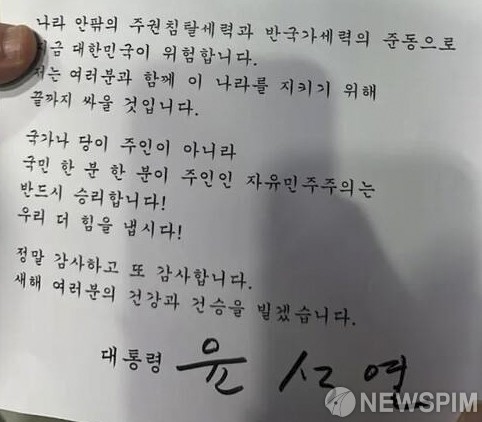 나라 안팎의 주권침탈세력과 반국가세력의 준동으로
지금 대한민국이 위험합니다.
저는 여러분과 함께 이 나라를 지키기 위해
끝까지 싸울 것입니다.
국가나 당이 주인이 아니라
국민 한 분 한 분이 주인인 자유민주주의는
반드시 승리합니다!
우리 더 힘을 냅시다!
정말 감사하고 또 감사합니다.
새해 여러분의 건강과 건승을 빌겠습니다.
대통령 윤석열
NEWSPIM